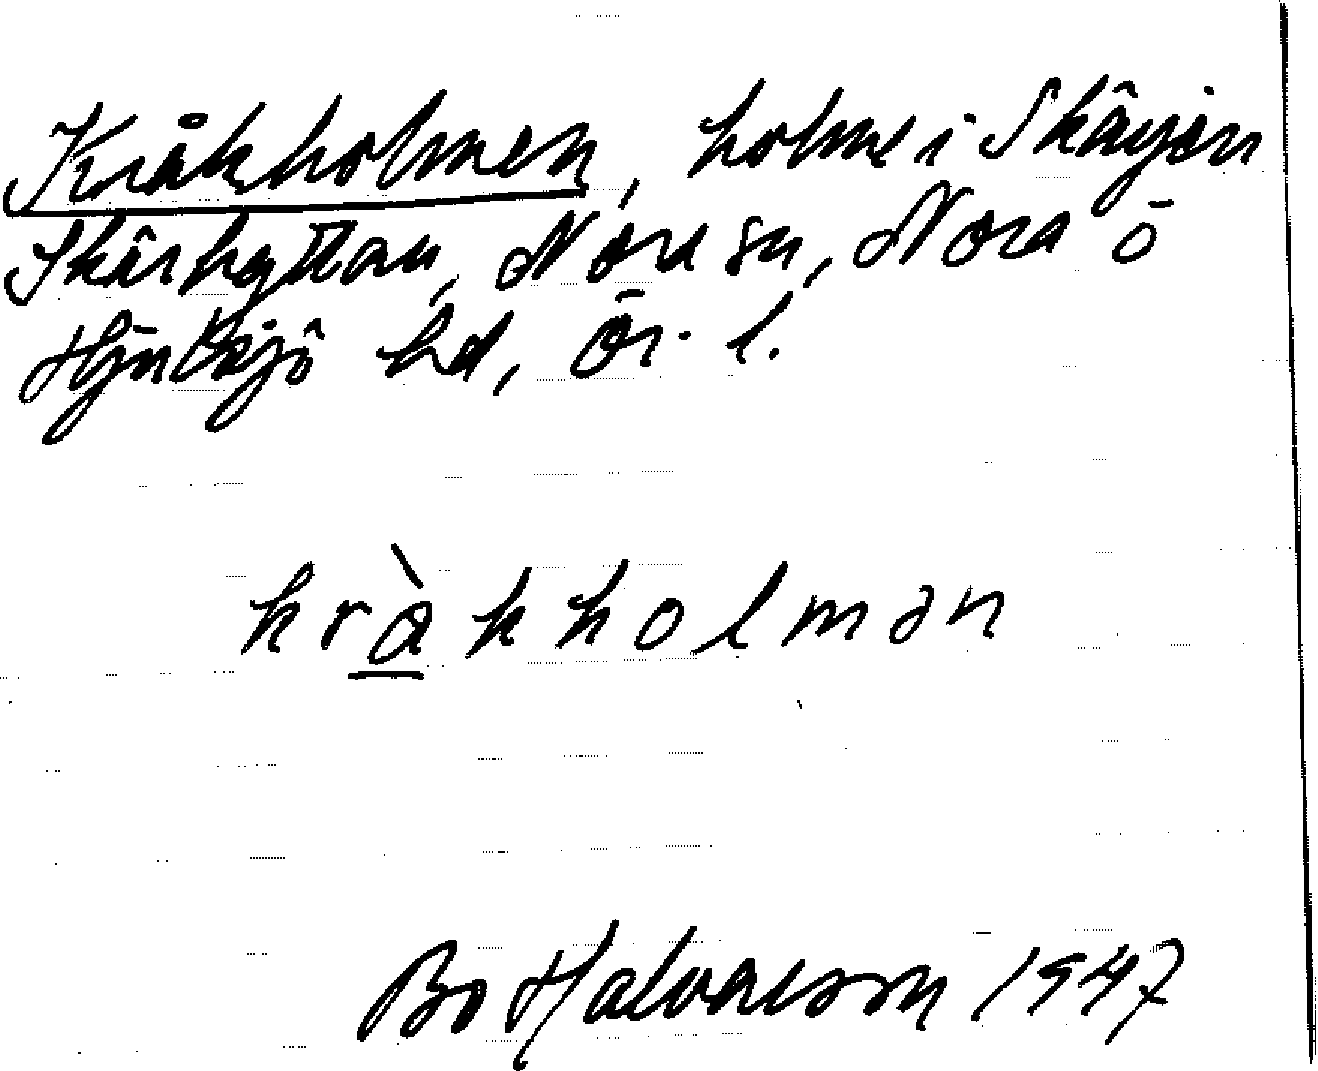 Kråkholmen, holme i Skärjen
Skärhyttan, Nora sn, Nora o
Hjulsjö hd, Ör. l.
kràkholmən
Bo Halvarsson 1947